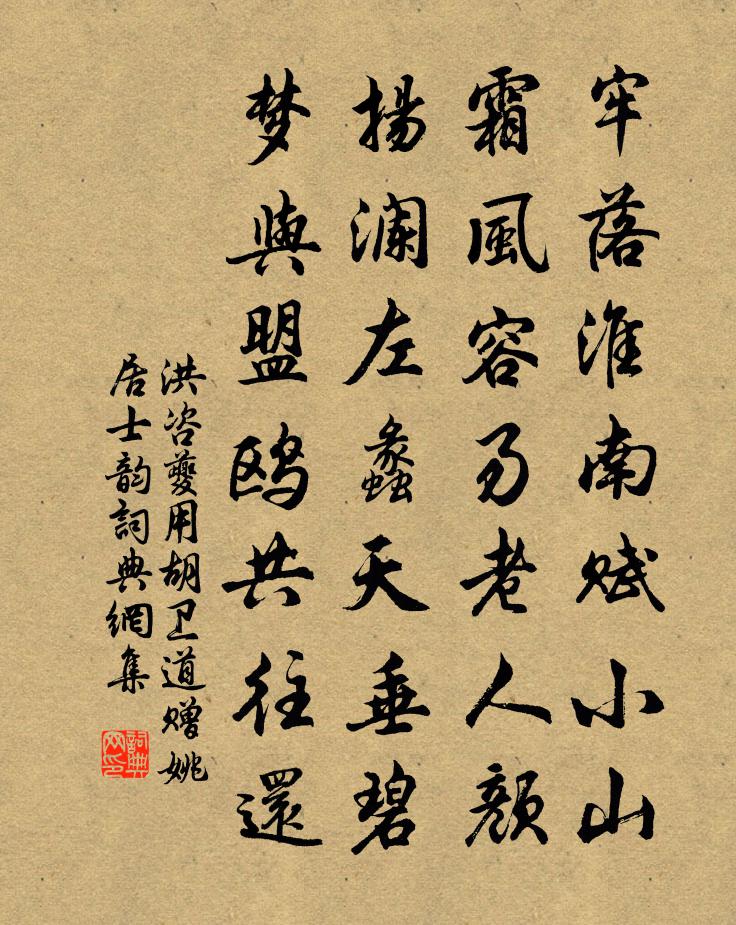 牢落淮南赋小山
霜風容易老人颜
揚澜左蠡天垂碧
梦與盟鸥共往還
洪咨夔用胡卫道赠姚
居士韵詞典網集
詞典网印